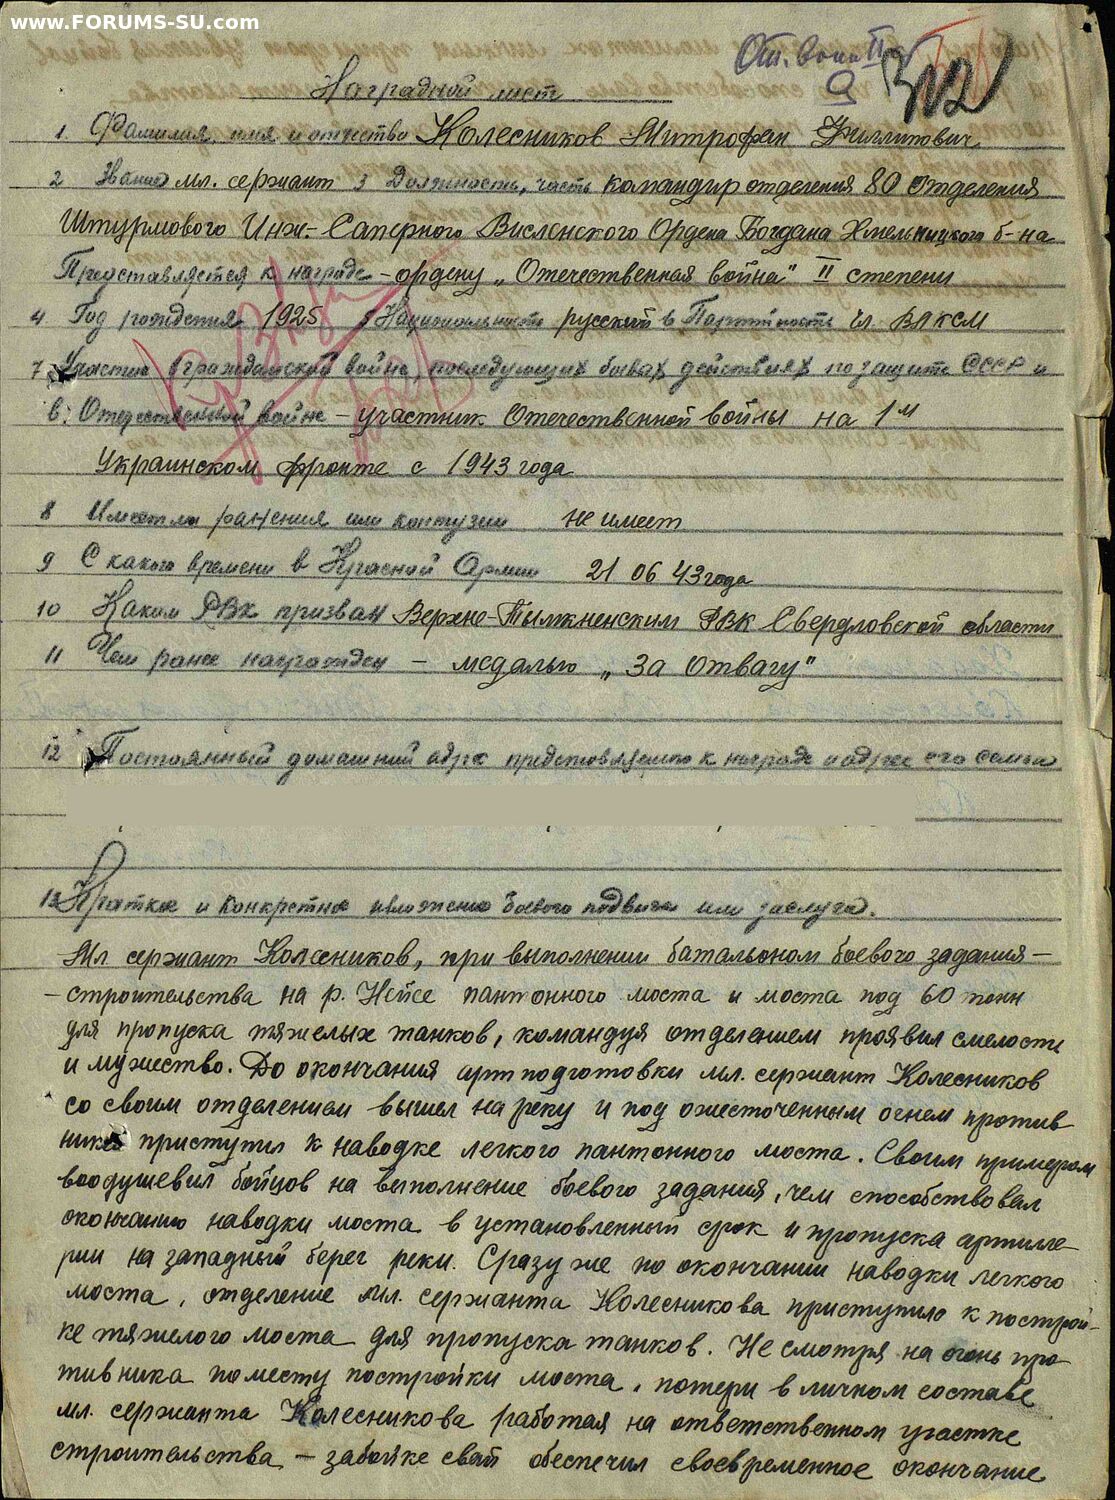 www.FORUMS-SU.com
От. войн II
9
Наградной лист
1. Фамилия, имя и отчество Колесников Митрофан Филлипович
2 Звание мл. сержант 3 Должность, часть командир отделения 80 отделения
Штурмового Инж.-Саперного Висленского Ордена Богдана Хмельницкого б-на
Представляется к награде – ордену „Отечественная война" II степени
4 Год рождения 1925 5 Национальность русский 6 Партийность чл. ВЛКСМ
7 Участие в гражданской войне, последующих боевых действиях по защите СССР и
в. Отечественной войне – участник Отечественной войны на 1м
Украинском фронте с 1943 года
8 Имеет ли ранения или контузии не имеет
9 С какого времени в Красной Армии 21 06 43 года
10 Каким РВК призван Верхне-Тылжненским РВК Свердловской области
11 Чем ранее награжден – медалью „За Отвагу"
12 Постоянный домашний адрес представляемого к награде и адрес его семьи
13 Краткое и конкретное изложение боевого подвига или заслуга.
Мл сержант Колесников, при выполнении батальоном боевого задания –
– строительства на р. Нейсе пантонного моста и моста под 60 тонн
для пропуска тяжелых танков, командуя отделением проявил смелость
и мужество. До окончания артподготовки мл. сержант Колесников
со своим отделением вышел на реку и под ожесточенным огнем против
ника приступил к наводке легкого пантонного моста. Своим примером
воодушевил бойцов на выполнение боевого задания, чем способствовал
окончанию наводки моста в установленный срок и пропуска артилле
рии на западный берег реки. Сразу же по окончании наводки легкого
моста, отделение мл. сержанта Колесникова приступило к построй-
ке тяжелого моста для пропуска танков. Не смотря на огонь про
тивника по месту постройки моста, потери в личном составе
мл. сержанта Колесникова работая на ответственном участке
строительства – забойке свай обеспечил своевременное окончание